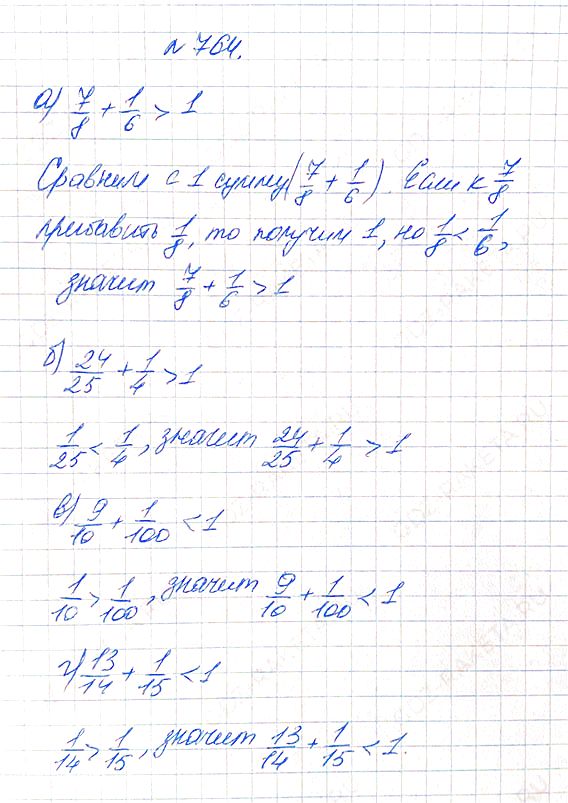 № 764.
а) 7/8 + 1/6 > 1
Сравним с 1 сумму (7/8 + 1/6). Если к 7/8
прибавить 1/8, то получим 1, но 1/8 < 1/6,
значит 7/8 + 1/6 > 1
б) 24/25 + 1/4 > 1
1/25 < 1/4, значит 24/25 + 1/4 > 1
в) 9/10 + 1/100 < 1
1/10 > 1/100, значит 9/10 + 1/100 < 1
г) 13/14 + 1/15 < 1
1/14 > 1/15, значит 13/14 + 1/15 < 1.